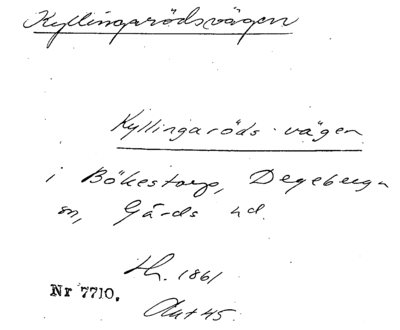 Kyllingarödsvägen
Kyllingaröds-vägen
i Bökestorp, Degeberga
sn, Gärds hd.
H. 1861
Nr 7710.
Akt 45